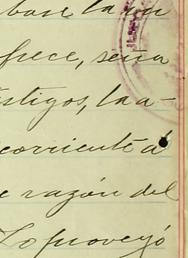 base la un
frece, seña
stigos, la a-
corriente á
e razón del
Lo proveyó